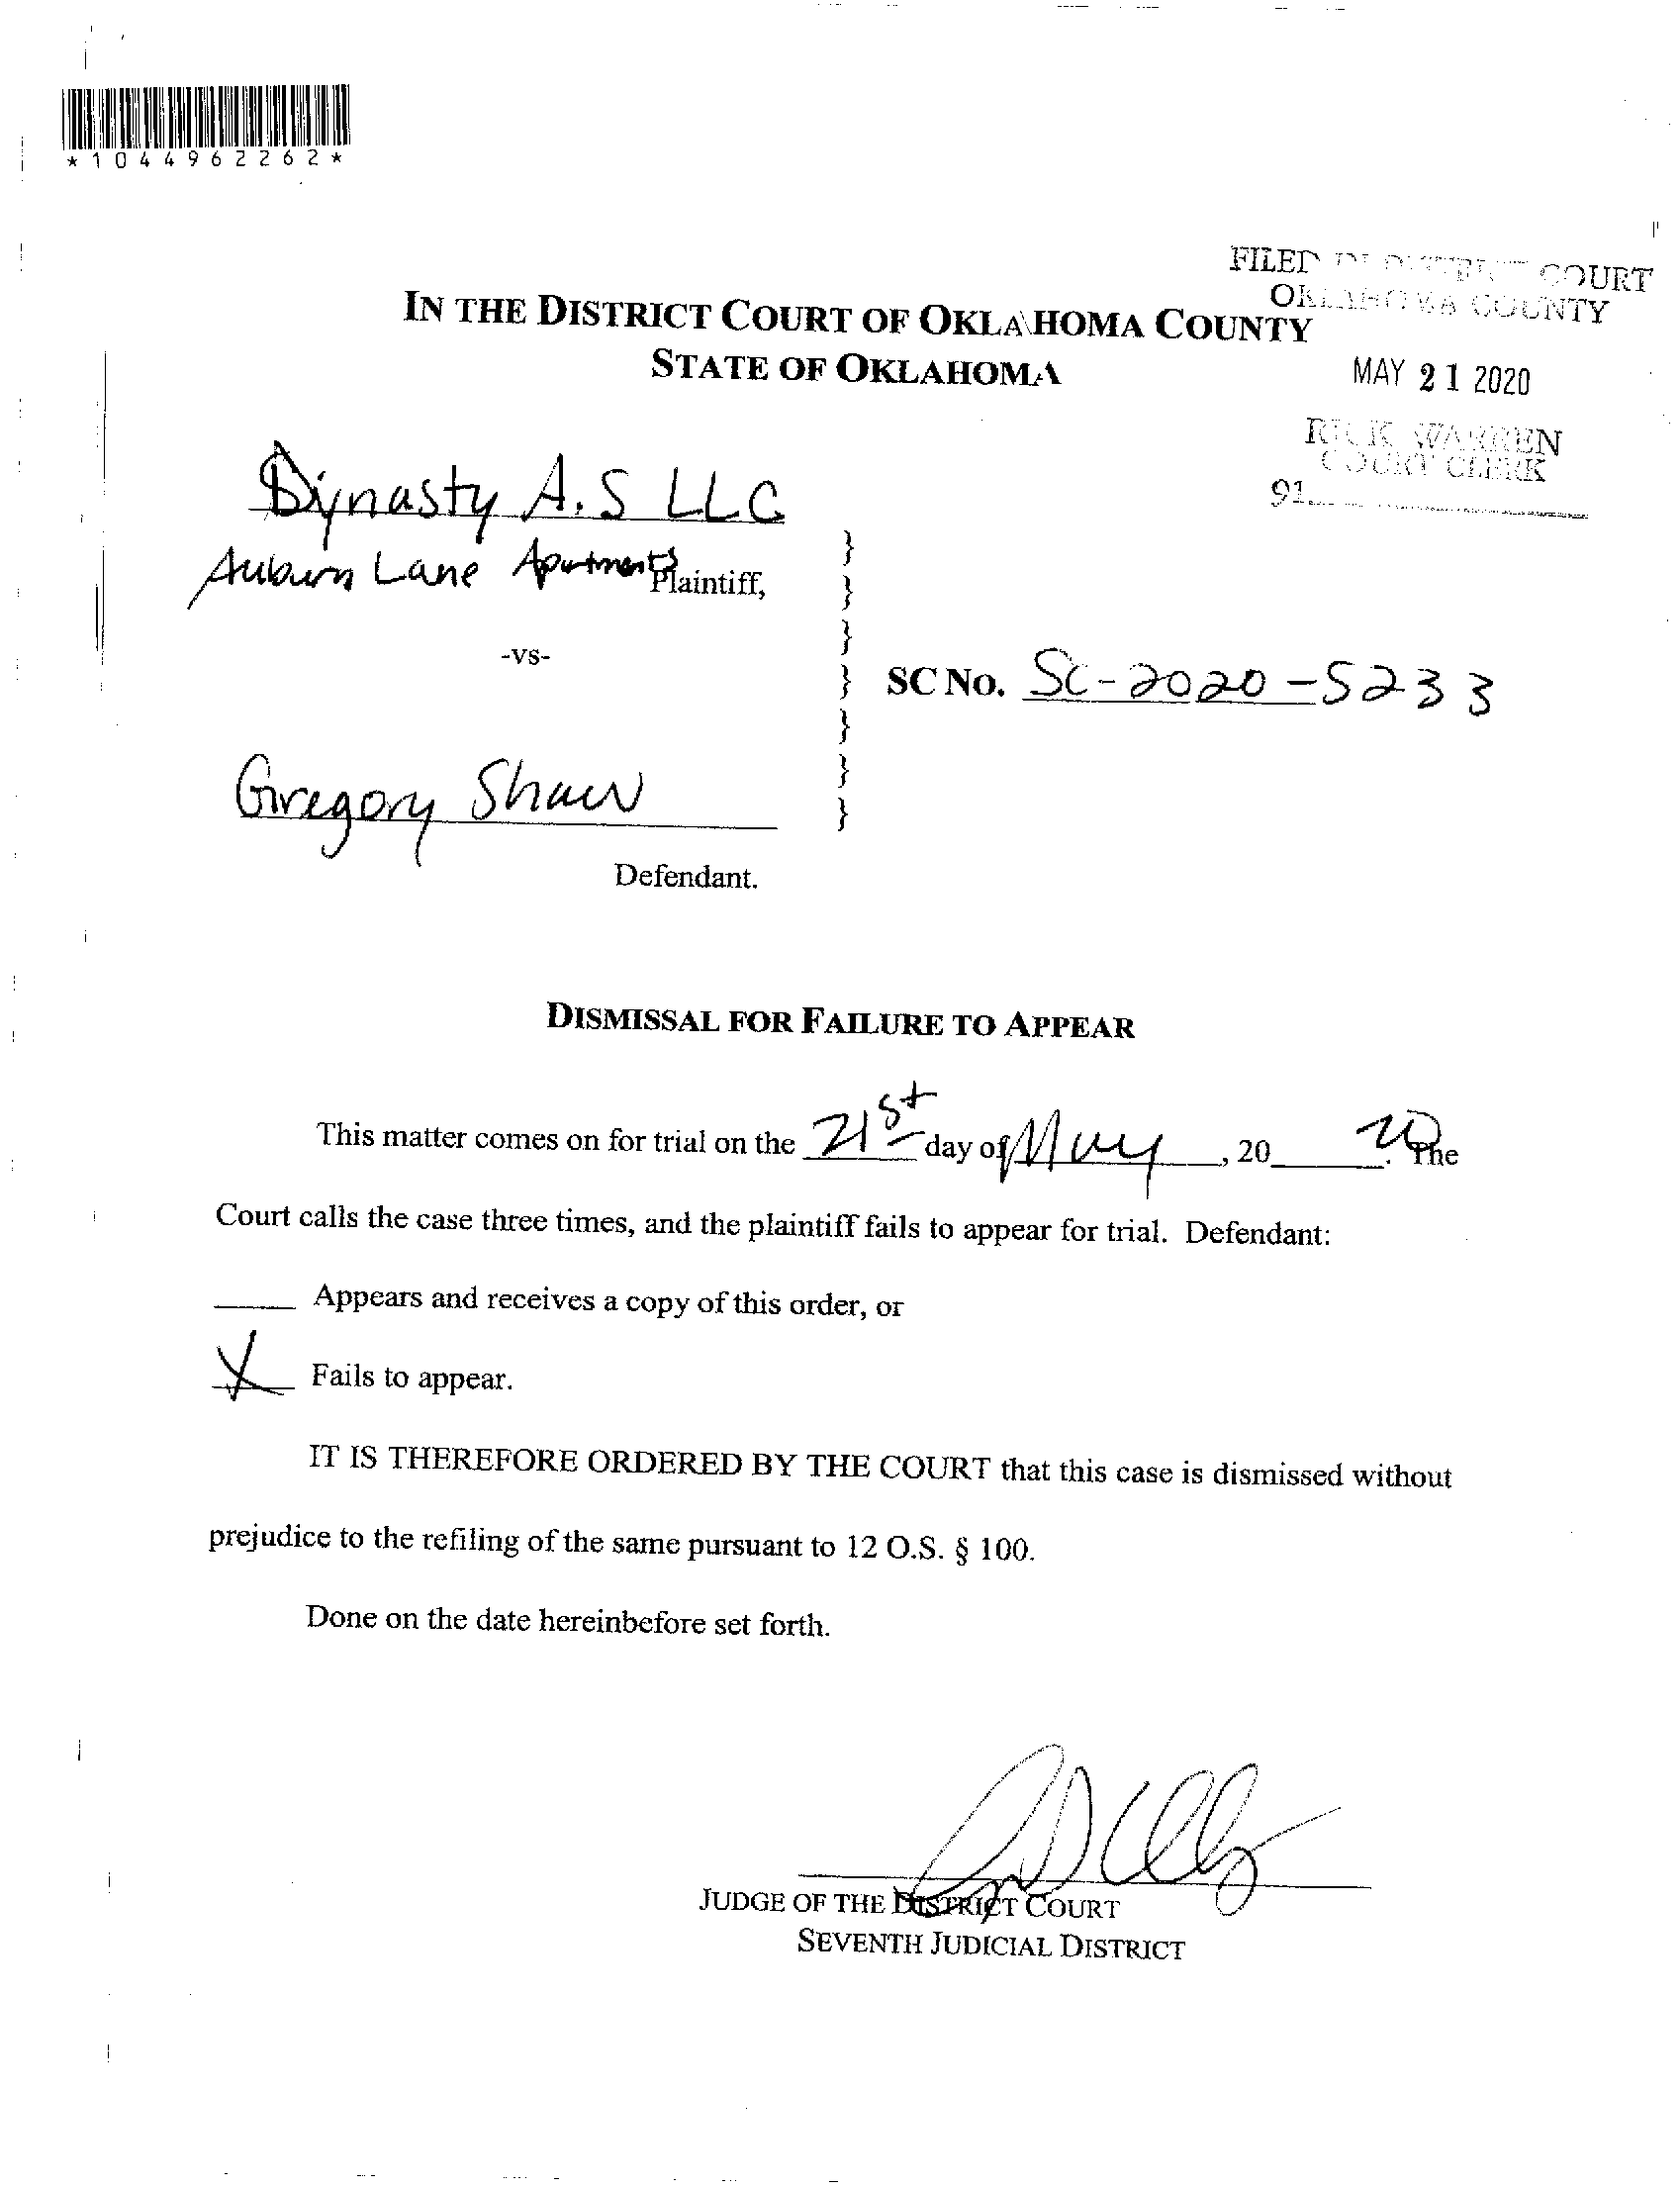 *1044962262*
FILED IN DISTRICT COURT
OKLAHOMA COUNTY
IN THE DISTRICT COURT OF OKLAHOMA COUNTY
STATE OF OKLAHOMA
MAY 21 2020
RICK WARREN
COURT CLERK
91
Dynasty A.S LLC
Auburn Lane Apartments
Plaintiff,
-vs-
SC No. SC-2020-5233
Gregory Shaw
Defendant.
}
}
}
}
}
}
}
DISMISSAL FOR FAILURE TO APPEAR
This matter comes on for trial on the 21st day of May, 20 20. The
Court calls the case three times, and the plaintiff fails to appear for trial. Defendant:
____ Appears and receives a copy of this order, or
X Fails to appear.
IT IS THEREFORE ORDERED BY THE COURT that this case is dismissed without
prejudice to the refiling of the same pursuant to 12 O.S. § 100.
Done on the date hereinbefore set forth.
JUDGE OF THE DISTRICT COURT
SEVENTH JUDICIAL DISTRICT